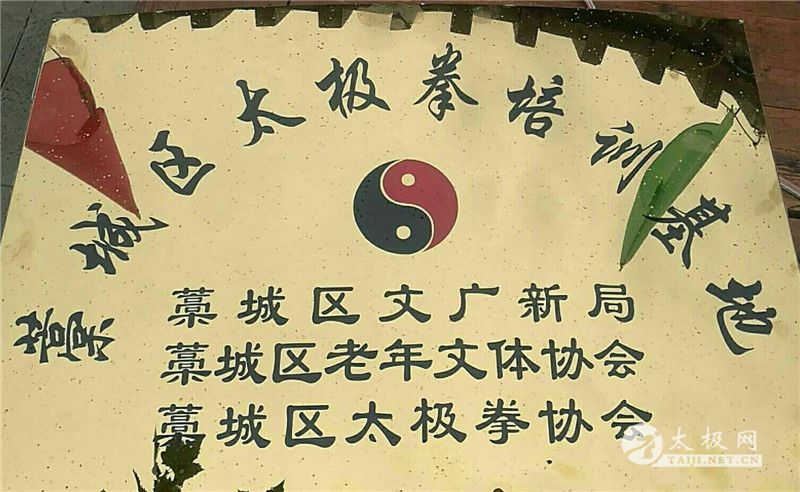 藁城区太极拳培训基地
藁城区文广新局
藁城区老年文体协会
藁城区太极拳协会
太极网
TAIJI.NET.CN